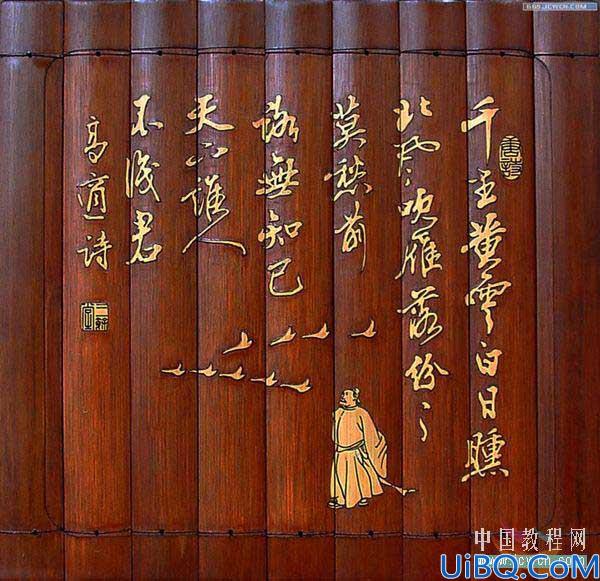 千里黄雲白日曛
北风吹雁雪纷〻
莫愁前
路無知己
天下誰人
不識君
高適詩
中国教程网
UiBQ.CoM